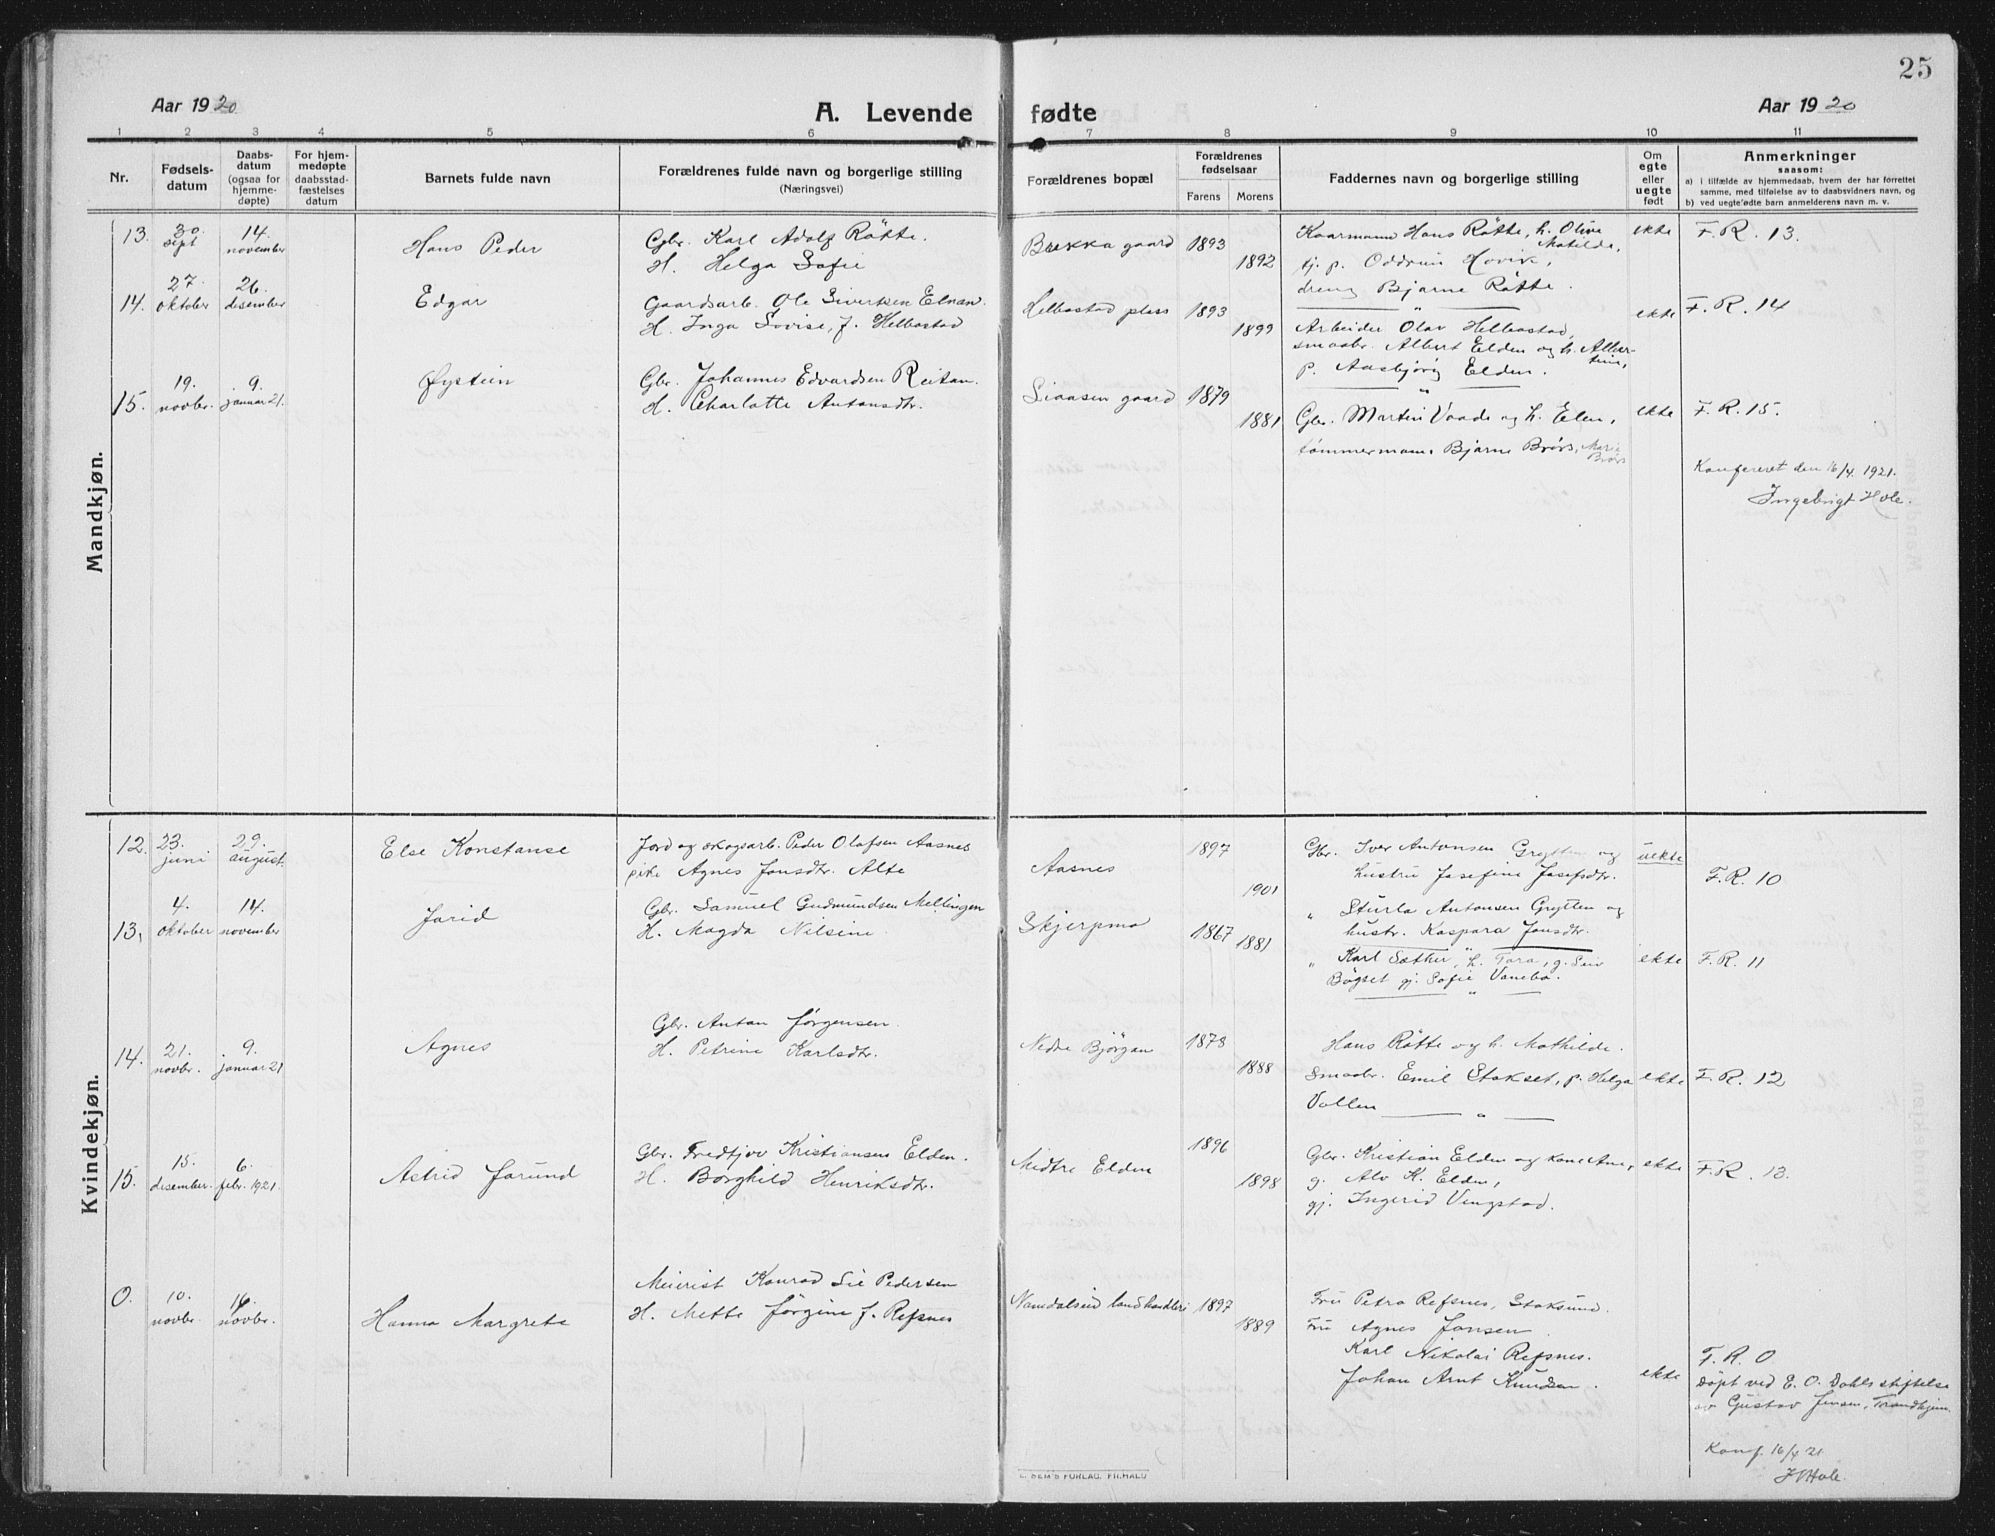 25
Aar 1920
A. Levende fødte
Aar 1920
1 2 3 4 5 6 7 8 9 10 11
Nr.
Fødsels-
datum
Daabs-
datum
(ogsaa for
hjemme-
døpte)
For hjem-
medøpte
daabsstad-
fæstelses
datum
Barnets fulde navn
Forældrenes fulde navn og borgerlige stilling
(Næringsvei)
Forældrenes bopæl
Forældrenes
fødselsaar
Farens Morens
Faddernes navn og borgerlige stilling
Om
egte
eller
uegte
født
Anmerkninger
saasom:
a) i tilfælde av hjemmedaab, hvem der har forrettet
samme, med tilføielse av to daabsvidners navn, og
b) ved uegtefødte barn anmelderens navn m. v.
Mandkjøn.
13. 30. sept 14. november
Hans Peder
Gbr. Karl Adolf Råtte.
H. Helga Sofie
Brekka gaard 1893 1892
Kaarmann Hans Råtte, h. Olive
Matilde,
tj. p. Oddrun Hovik,
dreng Bjarne Råtte.
ekte F. R. 13.
14. 27. oktober 26. desember
Edgar
Gaardsarb. Ole Sivertsen Elnan.
H. Inga Lovise, f. Helbostad
Helbostad plass 1893 1899
Arbeider Olav Helbostad,
smaabr. Albert Elden og h. Alber-
tine,
p. Aasbjørg Elden.
ekte F. R. 14
15. 19. novbr. 9. januar 21.
Øystein
Gbr. Johannes Edvardsen Reitan.
H. Charlotte Antonsdtr.
Liaasen gaard 1879 1881
Gbr. Martin Vaade og h. Elen,
tømmermann Bjarne Brørs, Marie
Brørs
ekte F. R. 15.
Konfereret den 16/4 1921.
Ingebrigt Hole.
Kvindekjøn.
12. 23. juni 29. august.
Else Konstanse
Jord og skogsarb. Peder Olafsen Aasnes
pike Agnes Jonsdtr. Alte
Aasnes 1897 1901
Gbr. Iver Antonsen Grytten og
hustru Josefine Josefsdtr.
" Sturla Antonsen Grytten og
hustr. Kaspara Jonsdtr.
uekte F. R. 10
13. 4. oktober 14. november
Jorid
Gbr. Samuel Gudmundsen Mellingen
H. Magda Nilsine
Skjerpmo 1867 1881
" Karl Sæther, h. Tora, g. Siv
Bøgset gj. Sofie Vanebo.
ekte F. R. 11
14. 21. novbr. 9. januar 21
Agnes
Gbr. Anton Jørgensen.
H. Petrine Karlsdtr.
Nedre Bjørgan 1878 1888
Hans Råtte og h. Mathilde.
Smaabr. Emil Stokset, p. Helga
Vollen
ekte F. R. 12
15. 15. desember. 6. febr. 1921.
Astrid Jorund
Gbr. Fredtjov Kristiansen Elden.
H. Borghild Henriksdtr.
Midtre Elden 1896 1898
Gbr. Kristian Elden og kone Ane,
g. Alv K. Elden,
gj. Ingerid Vengstad.
ekte F. R. 13.
0. 10. novbr. 16. novbr.
Hanna Margrete
Meierist Konrad Sie Pedersen
H. Mette Jørgine f. Refsnes
Namdalseid landhandleri 1897 1889
Fru Petra Refsnes, Stoksund.
Fru Agnes Jonsen
Karl Nikolai Refsnes.
Johan Arnt Knudsen.
ekte F. R. 0
Døpt ved E. O. Dahls stiftelse
av Gustav Jensen, Trondhjem.
Konf. 16/4 21
I Hole.
E. SEM'S FORLAG, FR.HALD